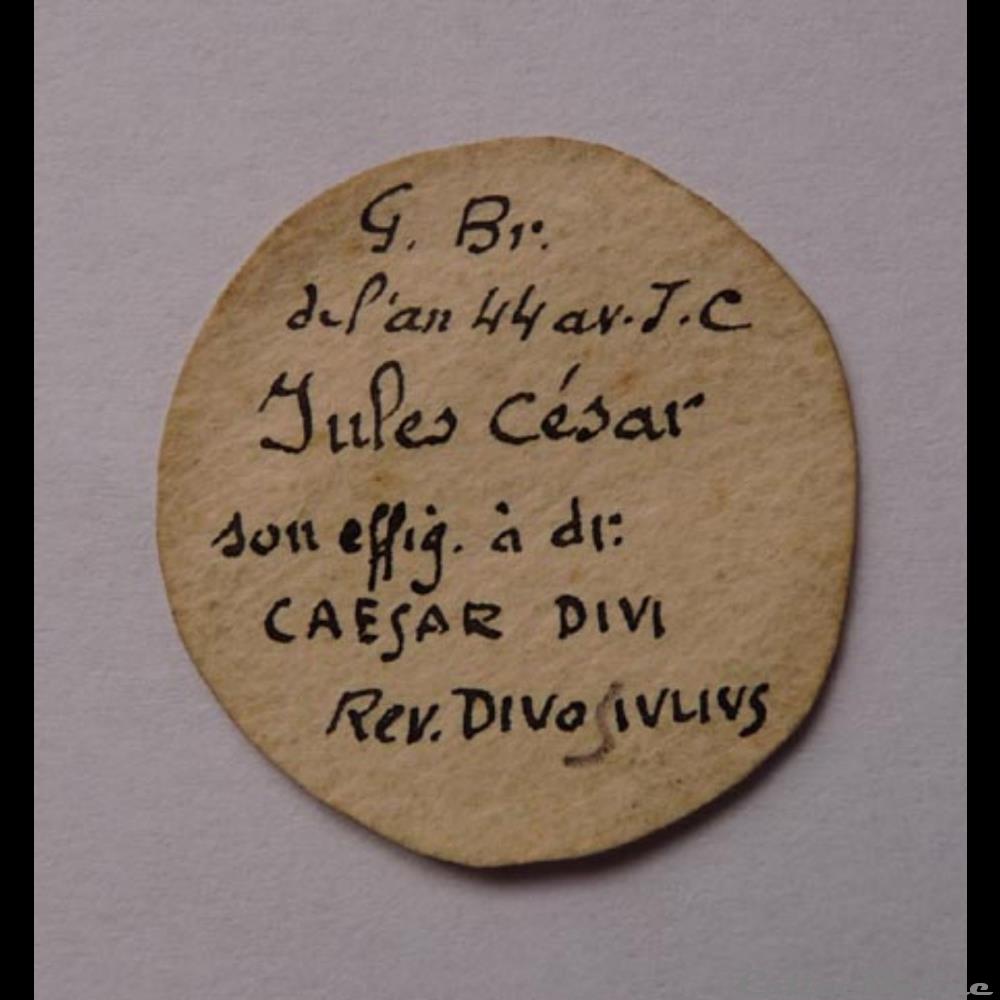 G. Br.
de l'an 44 av. J. C
Jules César
son effig. à dr.
CAESAR DIVI
Rev. DIVOS IVLIVS